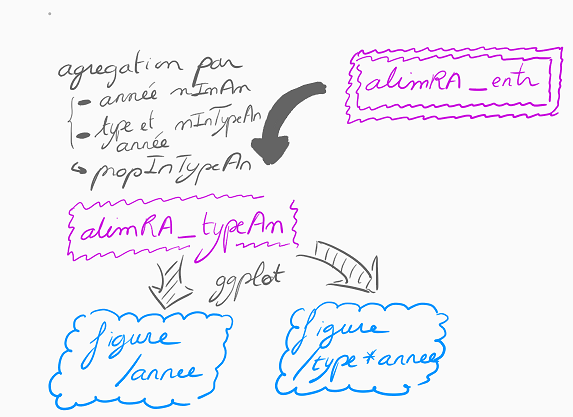 agregation par
- année nInAn
- type et année nInTypeAn
↳ propInTypeAn
alimRA_entr
alimRA_typeAn
ggplot
figure
/annee
figure
/type*annee